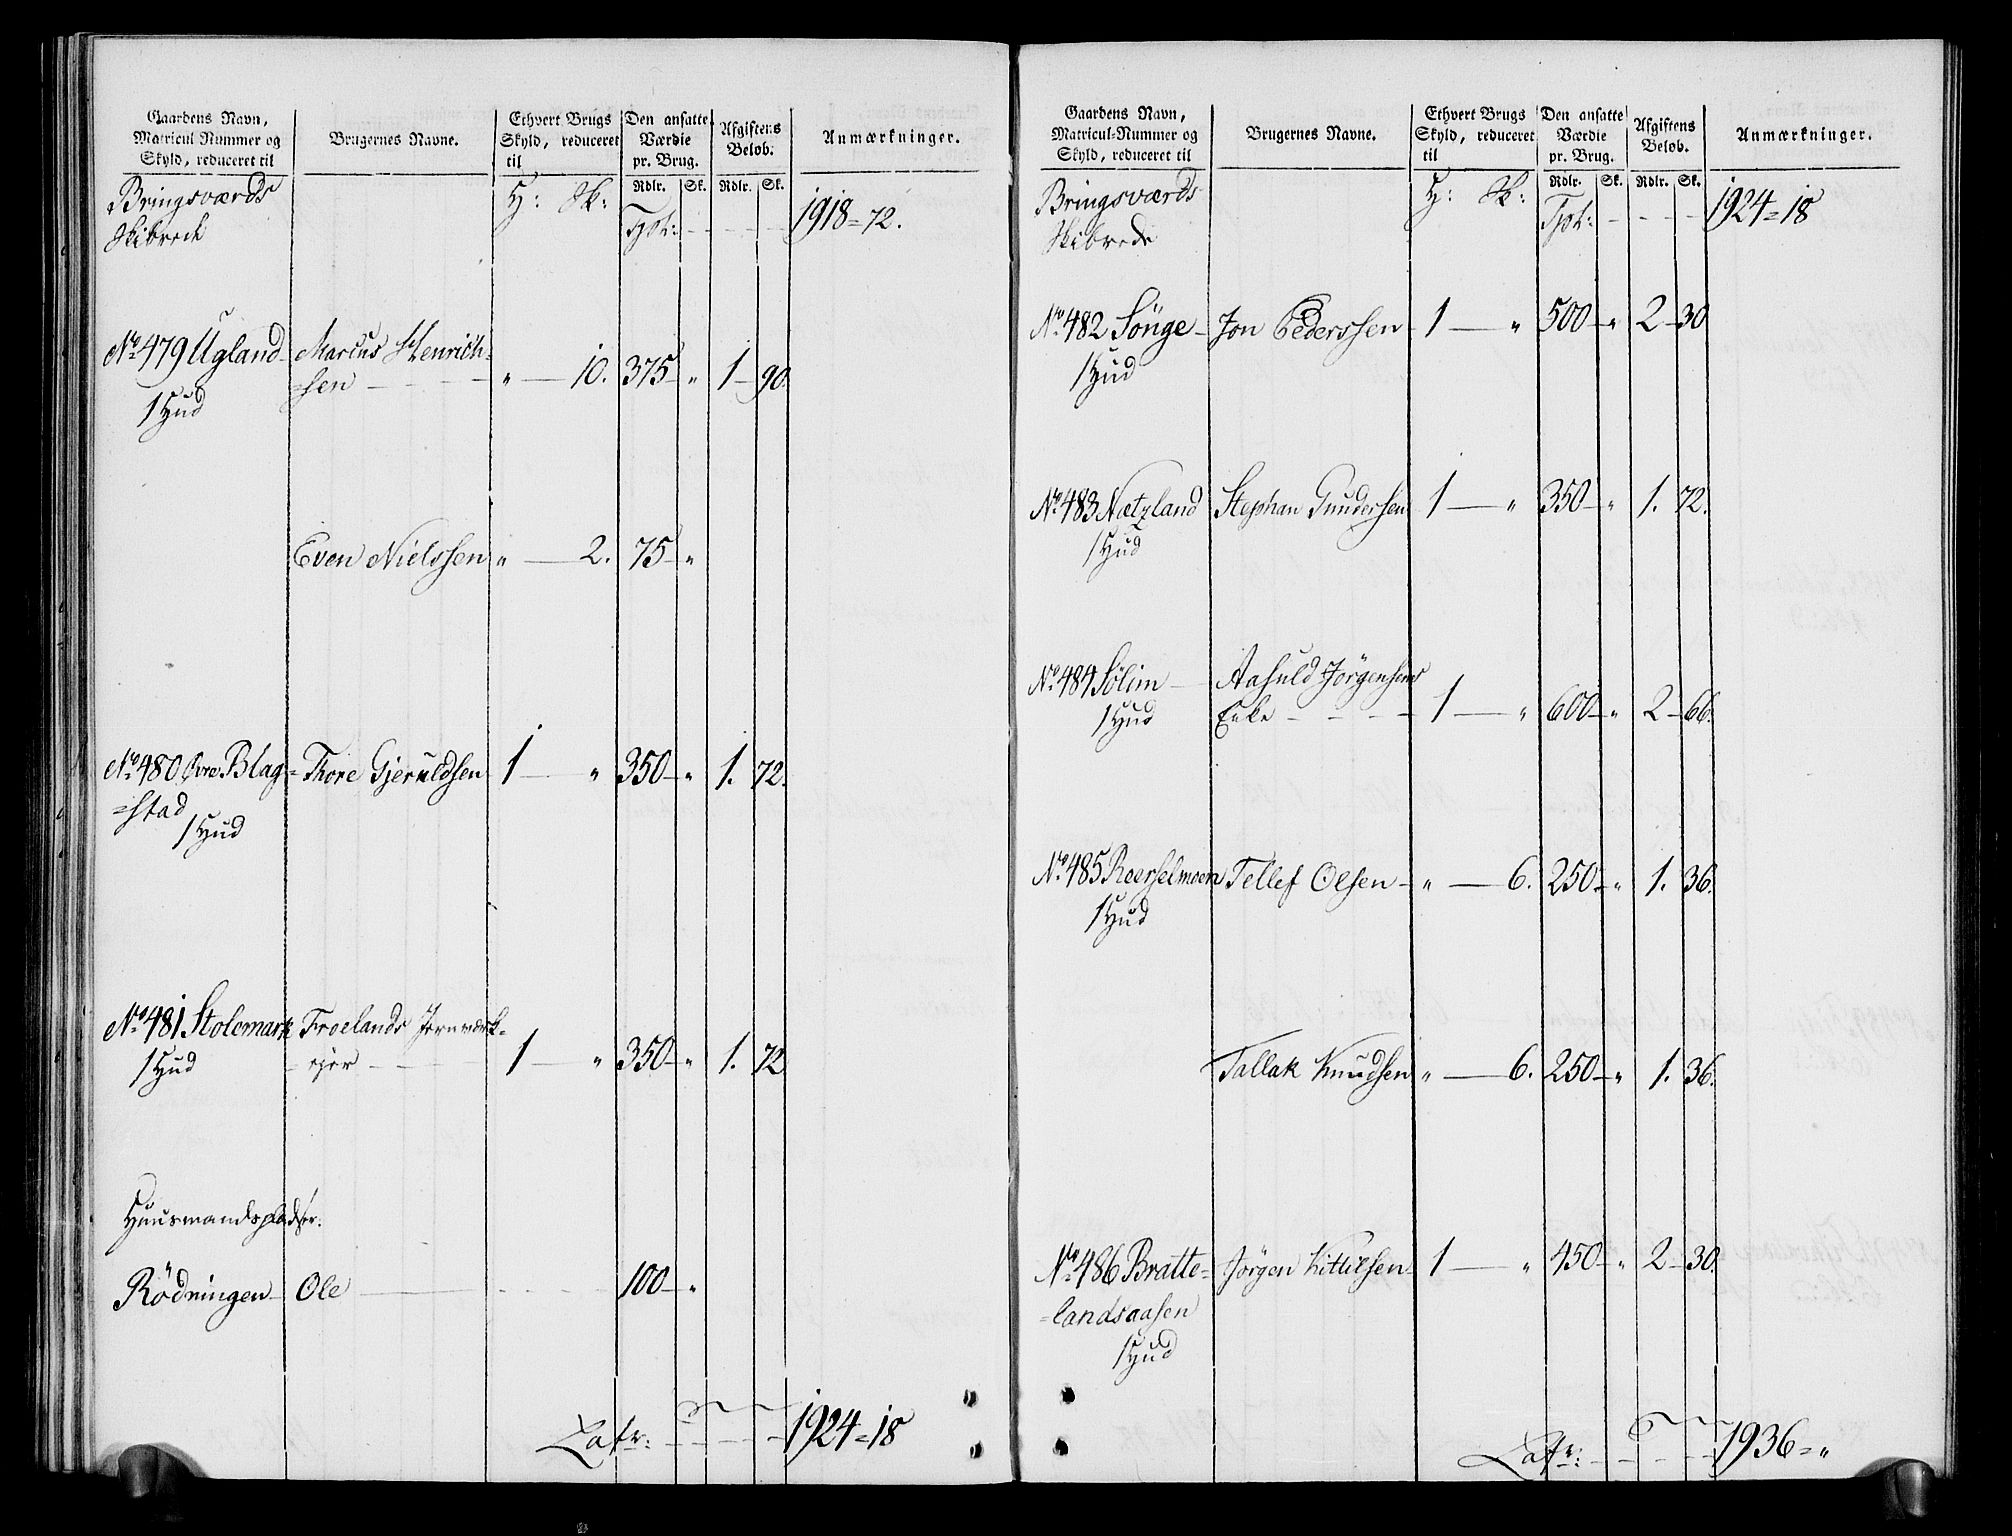 Gaardens Navn, Matricul Nummer og Skyld, reduceret til
Brugernes Navne.
Ethvert Brugs Skyld, reduceret til
Den ansatte Værdie pr. Brug.
Afgiftens Beløb.
Anmærkninger.
Rdlr. Sk. Rdlr. Sk.
Bringsværds H: Sk: 1918=72.
Skibrede Tpt:
No 479 Ugland Marcus Henrich-
=sen " 10. 375 " 1 90.
1 Hud
Even Nielssen " 2. 75 "
No 480 Øvre Blag= Thore Gjeruldsen 1 " 350 " 1. 72.
=stad
1 Hud
No 481 Stolemark Froelands Jernværk-
1 Hud ejer 1 " 350 " 1. 72
Huusmandspladser.
Rödningen Ole 100 "
Latr: 1924=18
Gaardens Navn, Matricul-Nummer og Skyld, reduceret til
Brugernes Navne.
Ethvert Brugs Skyld, reduceret til
Den ansatte Værdie pr. Brug.
Afgiftens Beløb.
Anmærkninger.
Rdlr. Sk. Rdlr. Sk.
Bringsværds H: Sk: 1924=18
Skibrede Tpt:
No 482 Sönge Jon Pederssen 1 " 500 " 2 30
1 Hud
No 483 Nætzland Stephan Gundersen 1 " 350 " 1. 72.
1 Hud
No 484 Sölim Aasuld Jörgensens
1 Hud Enke 1 " 600 " 2 66.
No 485 Roerselmoen Tellef Olsen " 6. 250 " 1. 36.
1 Hud
Tallak Knudsen " 6. 250 " 1. 36.
No 486 Bratte= Jörgen Kittilsen 1 " 450 " 2 30.
=landsaasen
1 Hud
Latr: 1936="